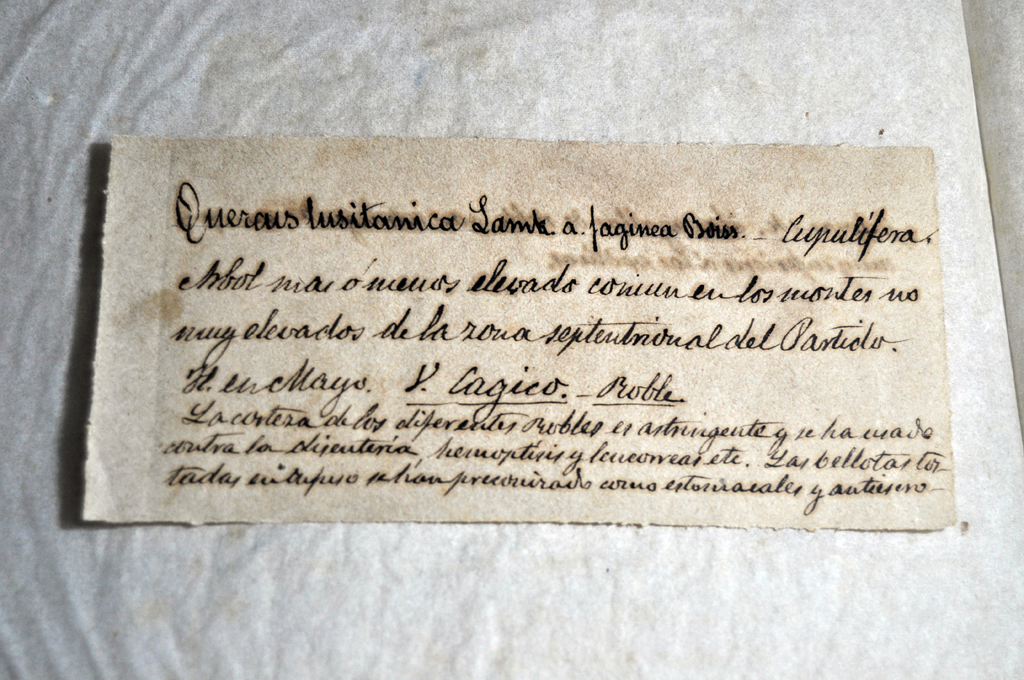 Quercus lusitanica Lamk. a. faginea Boiss. - Cupulífera.
Arbol mas ó menos elevado comun en los montes no
muy elevados de la zona septentrional del Partido.
Fl. en Mayo. V. Cagico. - Roble
La corteza de los diferentes Robles es astringente y se ha usado
contra la disentería, hemoptisis y leucorreas etc. Las bellotas tos-
tadas en infuso se han preconizado como estomacales y antiescro-